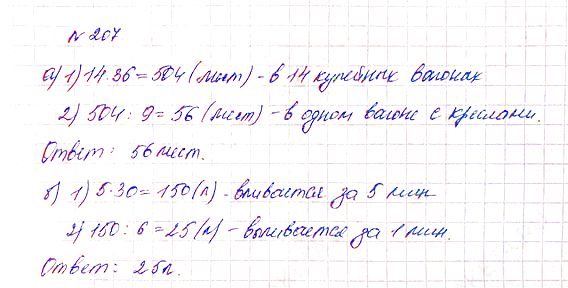 № 207
а) 1) 14·36=504 (мест) - в 14 купейных вагонах
2) 504 : 9=56 (мест) - в одном вагоне с креслами.
Ответ: 56 мест.
б) 1) 5·30=150 (л) - вливается за 5 мин
2) 150 : 6=25 (л) - выливается за 1 мин.
Ответ: 25л.